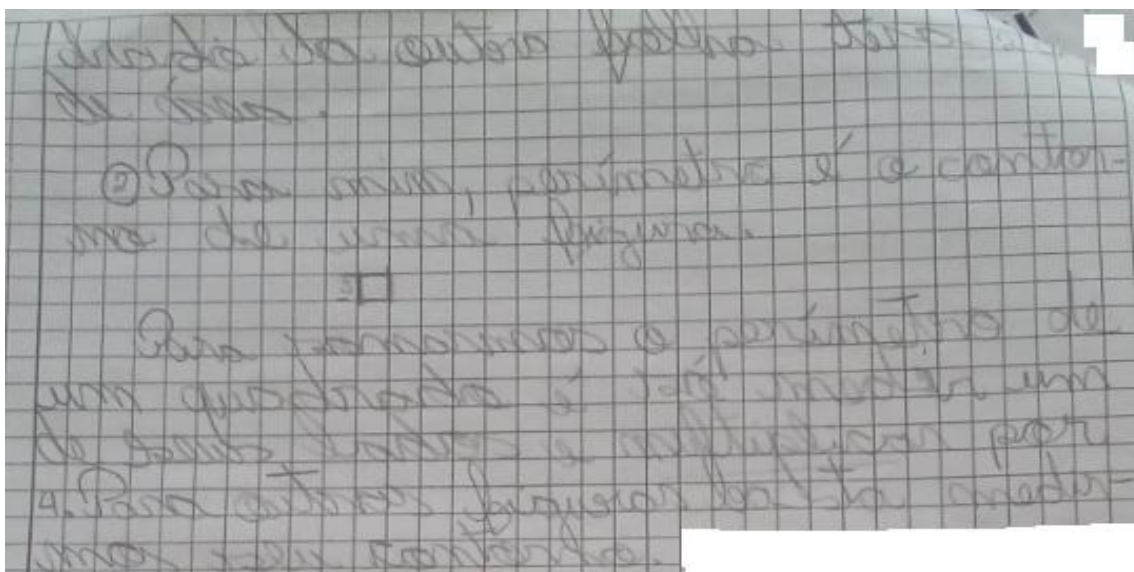 da outra folha
de área.
② Para mim, perímetro é o contor-
no de uma figura.
Para somarmos o perímetro de
um quadrado é só medir um
de seus lados e multiplicar por
4. Para outras figuras basta medir-
mos seu contorno.